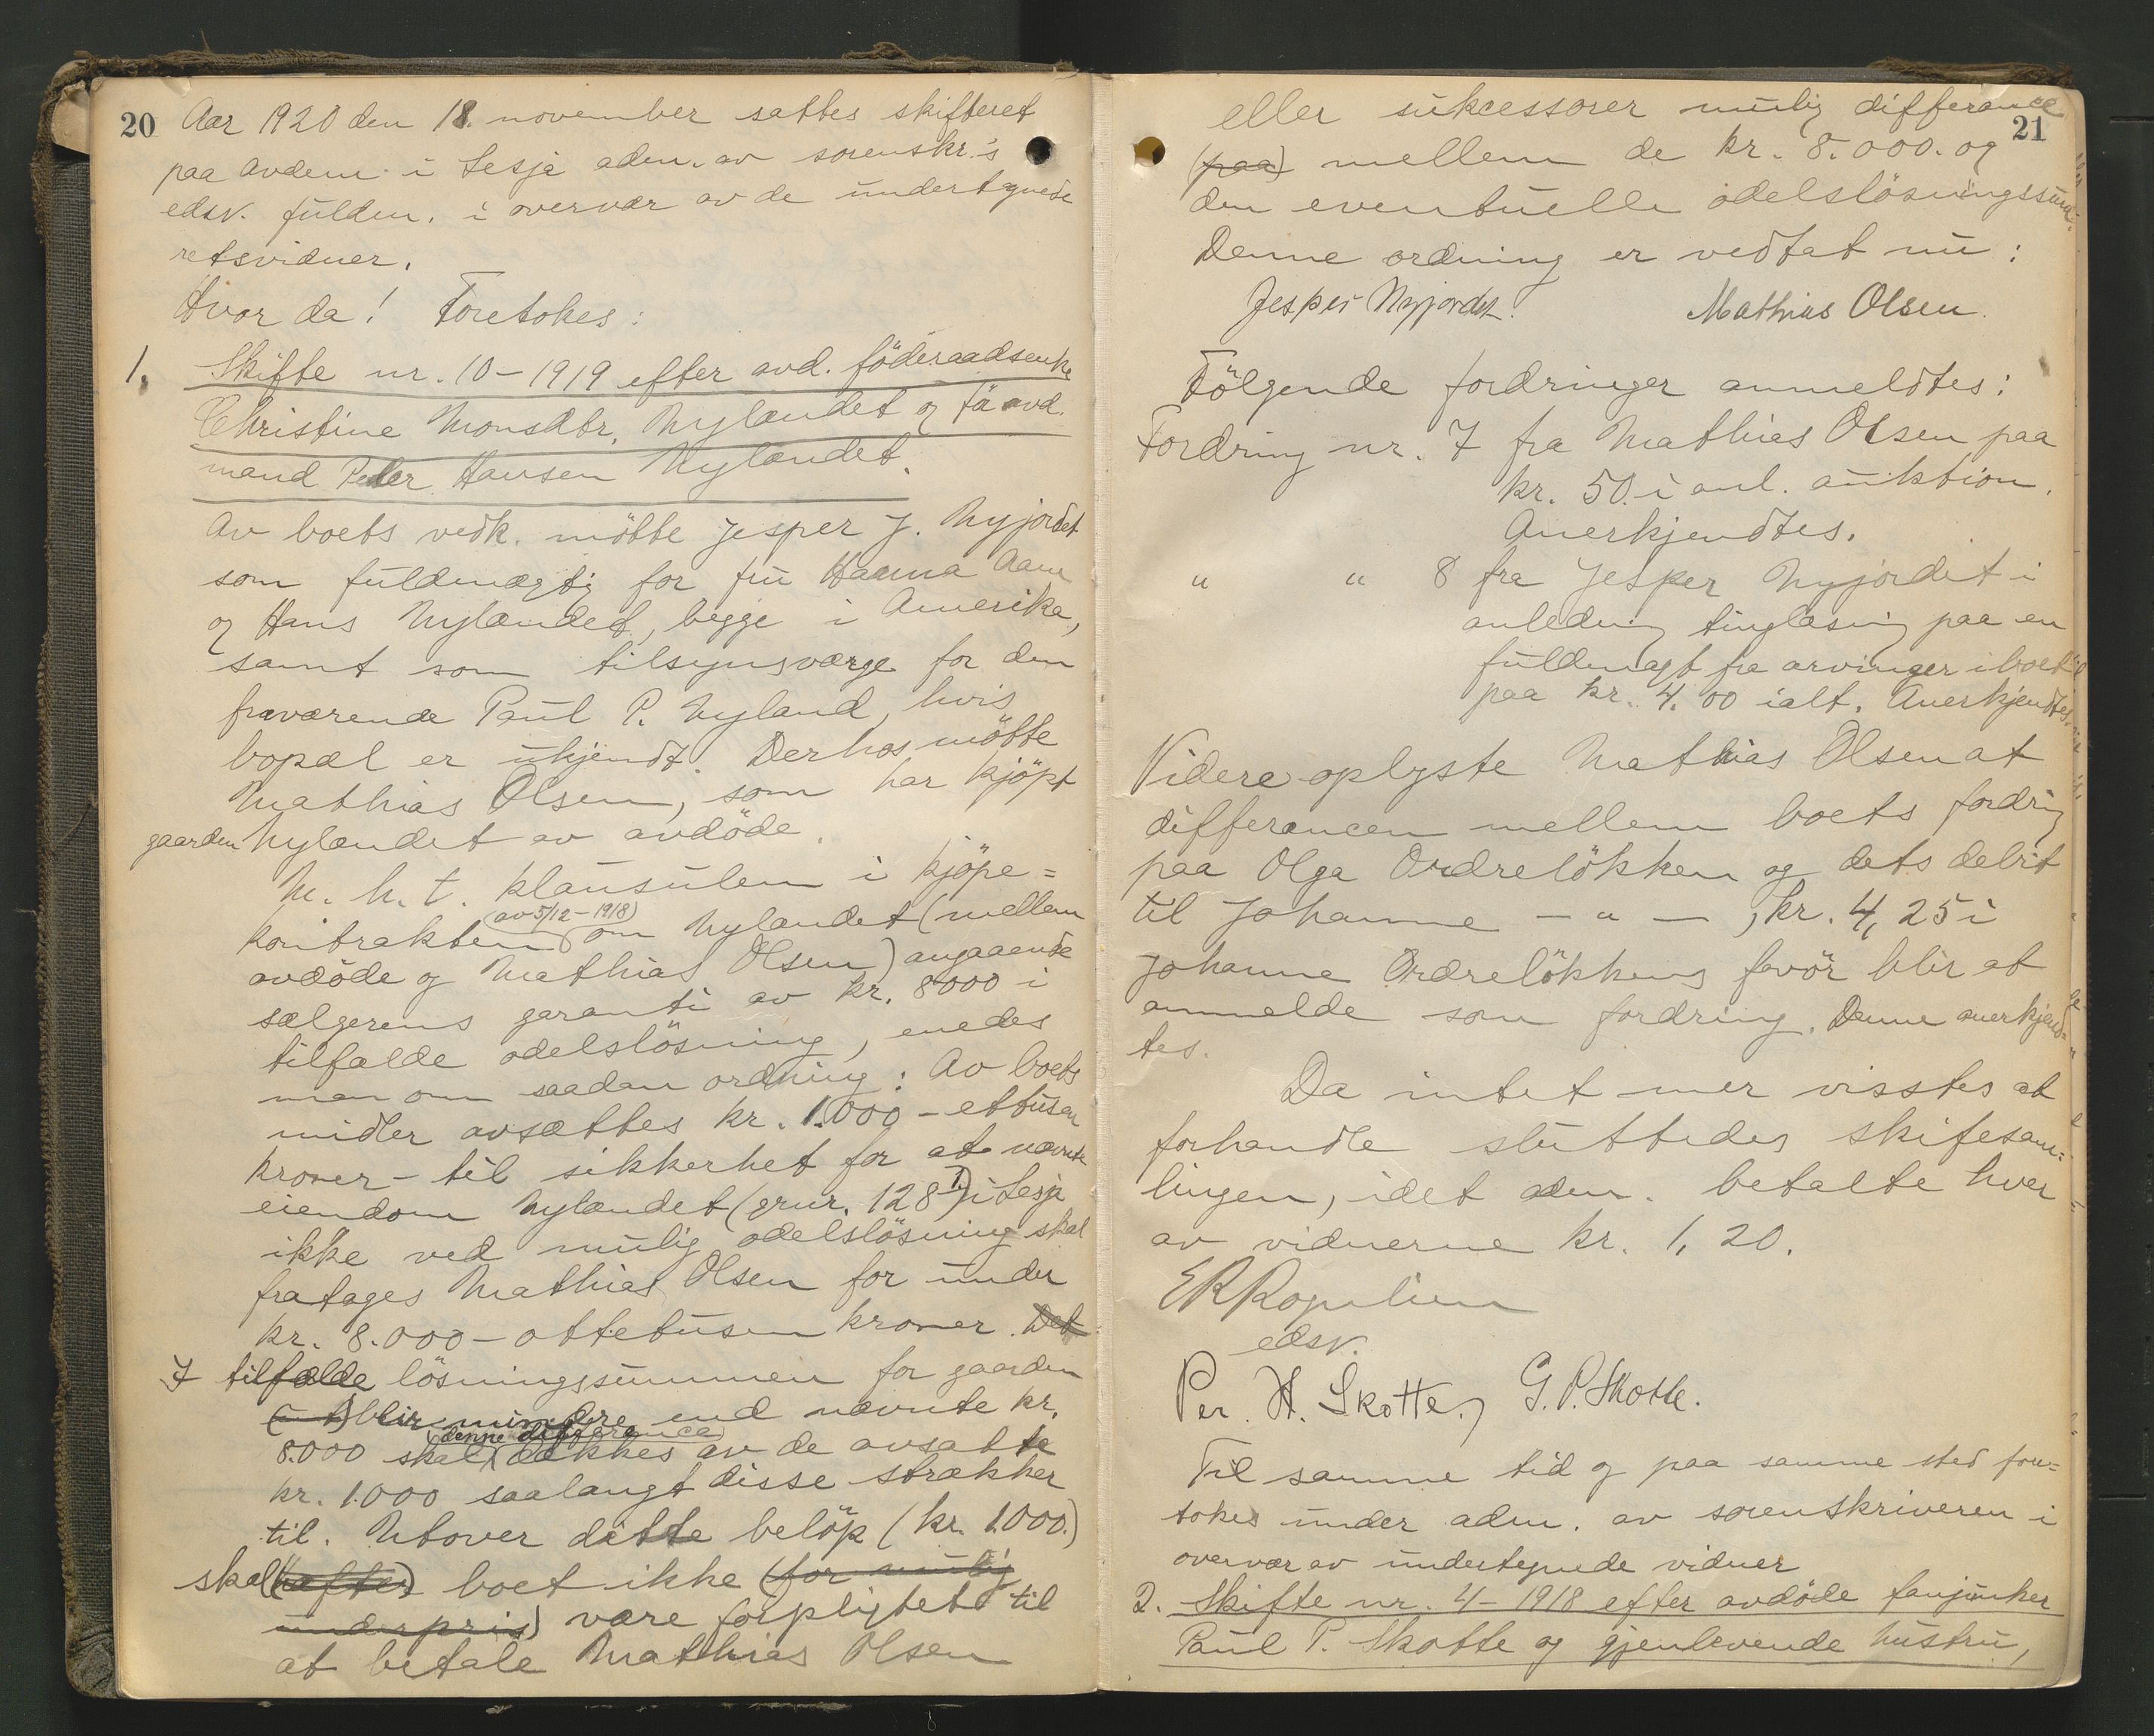 20
Aar 1920 den 18. november sattes skifteret
paa Avdem i Lesja adm. av sorenskr.'s
edsv. fuldm. i overvær av de undertegnede
retsvidner.
Hvor da! Foretokes:
1. Skifte nr. 10-1919 efter avd. föderaadsenke
Christine Monsdtr. Nylandet og før avd.
mand Peder Hansen Nylandet.
Av boets vedk. mötte Jesper J. Nyjordet
som fuldmægtig for fru Hanna Aam
og Hans Nylandet, begge i Amerika,
samt som tilsynsværge for den
fraværende Paul P. Nyland, hvis
bopæl er ukjendt. Derhos mötte
Mathias Olsen, som har kjöpt
gaarden Nylandet av avdöde.
M. h. t. klausulen i kjöpe=
kontrakten (av 5/12-1918) om Nylandet (mellem
avdöde og Mathias Olsen) angaaende
sælgerens garanti av kr. 8000 i
tilfælde odelslösning, enedes
man om saadan ordning: Av boets
midler avsættes kr. 1.000 - ettusen
kroner - til sikkerhet for at nævnte
eiendom Nylandet (grnr. 128 1) i Lesja
ikke ved mulig odelslösning skal
fratages Mathias Olsen for under
kr. 8.000 - ottetusen kroner. Det
I tilfælde lösningssummen for gaarden
blir mindre end nævnte kr.
8.000 skal (denne differance) dækkes av de avsatte
kr. 1.000 saalangt disse strækker
til. Utover dette belöp (kr. 1.000.)
skal (hefter) boet ikke (for mulig
underpris) være forpligtet til
at betale Mathias Olsen
21
eller sukcessorer mulig differance
(paa) mellem de kr. 8.000. og
den eventuelle odelslösningssum.
Denne ordning er vedtat nu:
Jesper Nyjordet. Mathias Olsen.
Fölgende fordringer anmeldtes:
Fordring nr. 7 fra Mathias Olsen paa
kr. 50. i anl. auktion.
Anerkjendtes.
" " 8 fra Jesper Nyjordet i
anledning tinglæsing paa en
fuldmagt fra arvinger i boet til
paa kr. 4,00 ialt. Anerkjendtes.
Videre oplyste Mathias Olsen at
differancen mellem boets fordring
paa Olga Ordrelökken og dets debit
til Johanne - " - , kr. 4,25 i
Johanne Ordrelökkens favör blir at
anmelde som fordring. Denne anerkjend=
tes.
Da intet mer visstes at
forhandle sluttedes skifesam=
lingen, idet adm. betalte hver
av vidnerne kr. 1,20.
edsv.
Per. H. Skotte, G. P. Skotte.
Til samme tid og paa samme sted fore=
tokes under adm. av sorenskriveren i
overvær av undertegnede vidner
2. Skifte nr. 4-1918 efter avdöde fanjunker
Paul P. Skotte og gjenlevende hustru,